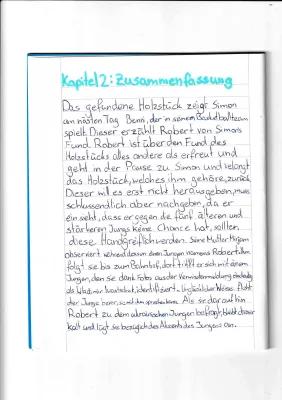 Kapitel 2: Zusammenfassung
Das gefundene Holzstück zeigt Simon
am nästen Tag Benni, der in seinem Basketballteam
spielt. Dieser erzählt Robert von Simons
Fund. Robert ist über den Fund des
Holzstücks alles andere als erfreut und
geht in der Pause zu Simon und verlangt
das Holzstück, welches ihm gehöre, zurück.
Dieser will es erst nicht herausgeben, muss
schlussendlich aber nachgeben, da er
ein sieht, dass er gegen die fünf älteren und
stärkeren Jungs keine Chance hat, sollten
diese Handgreiflich werden. Seine Mutter Mirjam
observiert währenddessen einen Jungen namens Robert. Ihm
folgt sie bis zum Bahnhof, dort trifft er sich mit einem
Jungen, den sie dank Fotos aus der Vermisstenmeldung eindeutig
als Wladimir identifiziert. Unglücklicher Weise flieht
der Junge bevor sie mit ihm sprechen kann. Als sie daraufhin
Robert zu dem ukrainischen Jungen befragt, bleibt dieser
kalt und lügt sie bezüglich des Akzents des Jungens an.